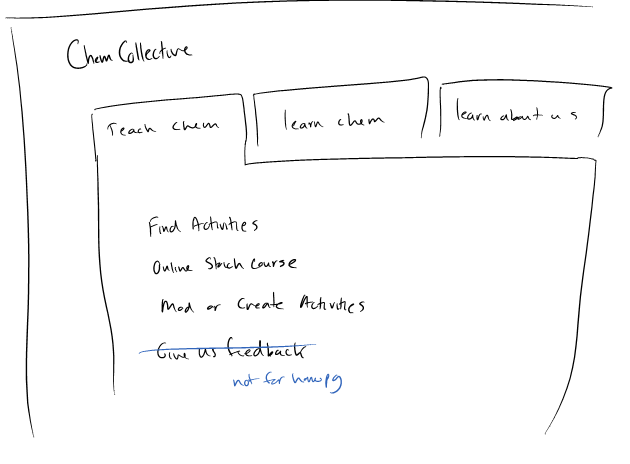 Chem Collective
Teach chem
learn chem
learn about us
Find Activities
Online Stoich Course
Mod or Create Activities
Give us feedback
not for hmpg